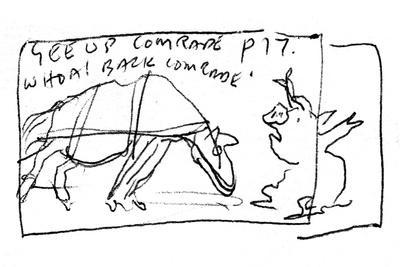 GEE UP COMRADE P17.
WHOA! BACK COMRADE!